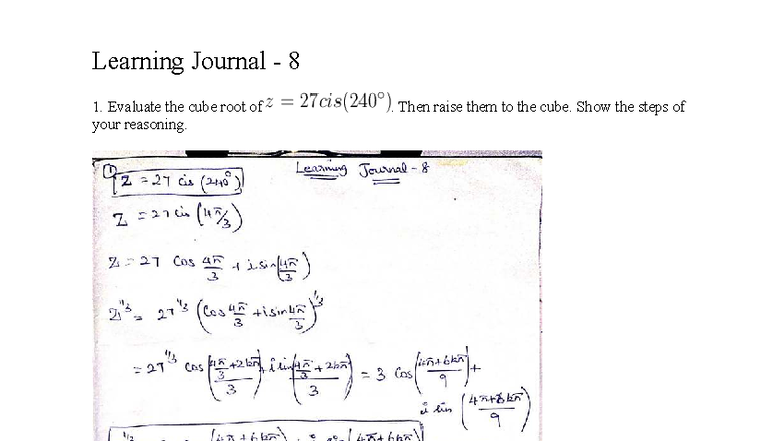 Learning Journal - 8
1. Evaluate the cube root of z = 27cis(240°). Then raise them to the cube. Show the steps of
your reasoning.
Learning Journal - 8
① Z = 27 cis (240°)
Z = 27 cis (4π/3)
Z = 27 Cos 4π/3 + i sin(4π/3)
Z^1/3 = 27^1/3 (Cos 4π/3 + i sin 4π/3)^1/3
= 27^1/3 Cos ((4π/3 + 2kπ)/3) + i sin((4π/3 + 2kπ)/3) = 3 Cos((4π+6kπ)/9) +
i sin ((4π+6kπ)/9)